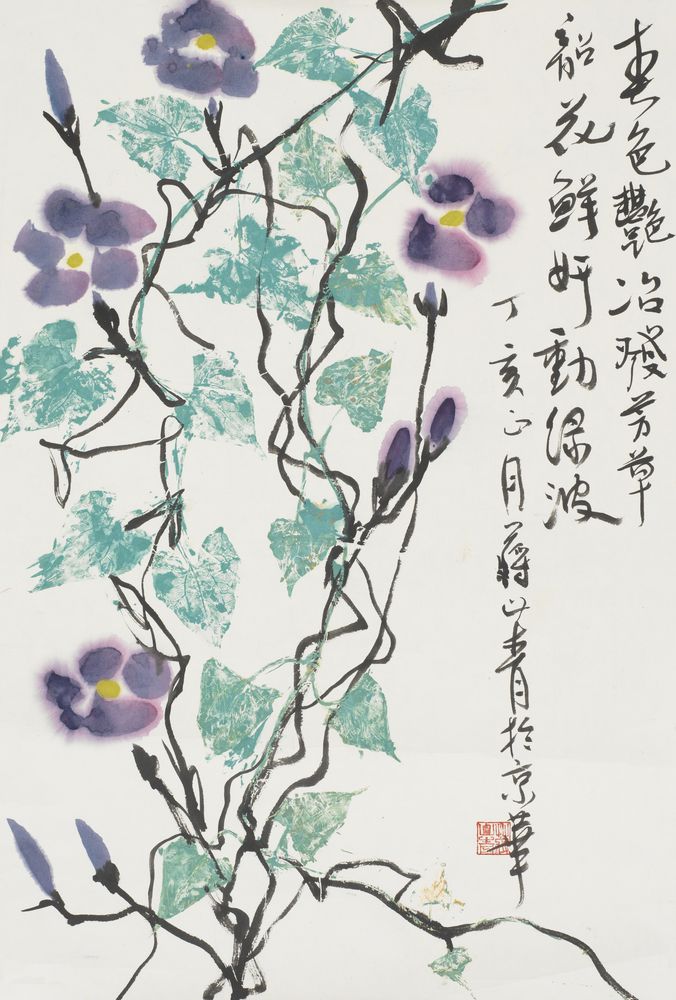 春色艷冶發芳草
韶花鮮妍動綠波
丁亥正月蔣山青於京華